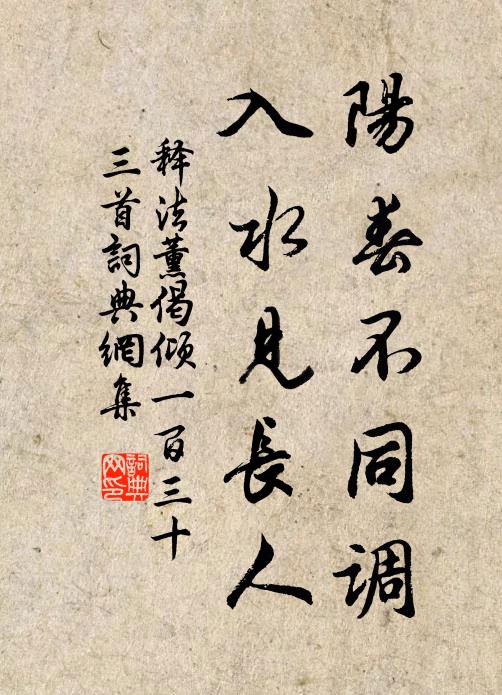 陽春不同調
入水見長人
释法薰偈傾一百三十
三首詞典網集
詞典網印